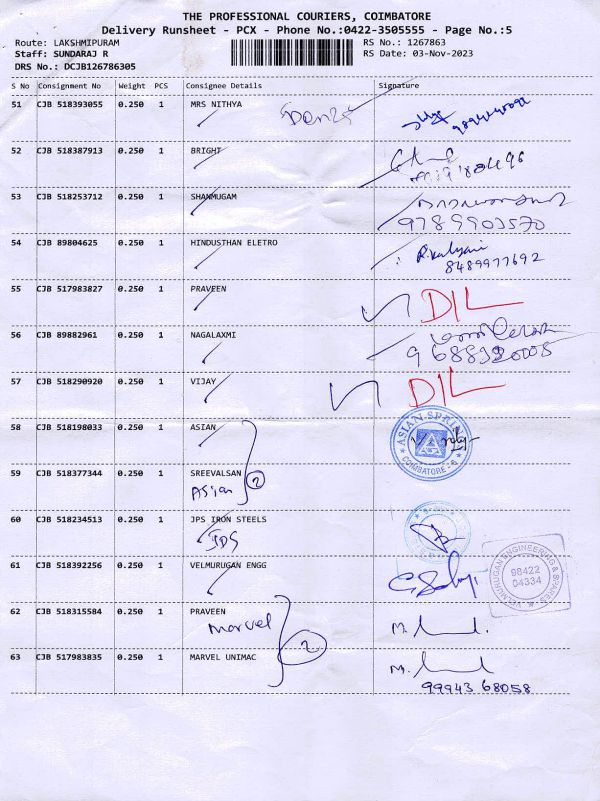 THE PROFESSIONAL COURIERS, COIMBATORE
Delivery Runsheet - PCX - Phone No.:0422-3505555 - Page No.:5
Route: LAKSHMIPURAM RS No.: 1267863
Staff: SUNDARAJ R RS Date: 03-Nov-2023
DRS No.: DCJB126786305
S No Consignment No Weight PCS Consignee Details Signature
51 CJB 518393055 0.250 1 MRS NITHYA
52 CJB 518387913 0.250 1 BRIGHT
53 CJB 518253712 0.250 1 SHANMUGAM
9789903570
54 CJB 89804625 0.250 1 HINDUSTHAN ELETRO R.Kalyani
8489977692
55 CJB 517983827 0.250 1 PRAVEEN DIL
56 CJB 89882961 0.250 1 NAGALAXMI
9688320008
57 CJB 518290920 0.250 1 VIJAY DIL
58 CJB 518198033 0.250 1 ASIAN ASIAN SPRING COIMBATORE - 6
59 CJB 518377344 0.250 1 SREEVALSAN
Asian 2
60 CJB 518234513 0.250 1 JPS IRON STEELS
JDS
61 CJB 518392256 0.250 1 VELMURUGAN ENGG VELMURUGAN ENGINEERING & SPARES 98422 04334
62 CJB 518315584 0.250 1 PRAVEEN
Marvel 2
63 CJB 517983835 0.250 1 MARVEL UNIMAC
99943 68058